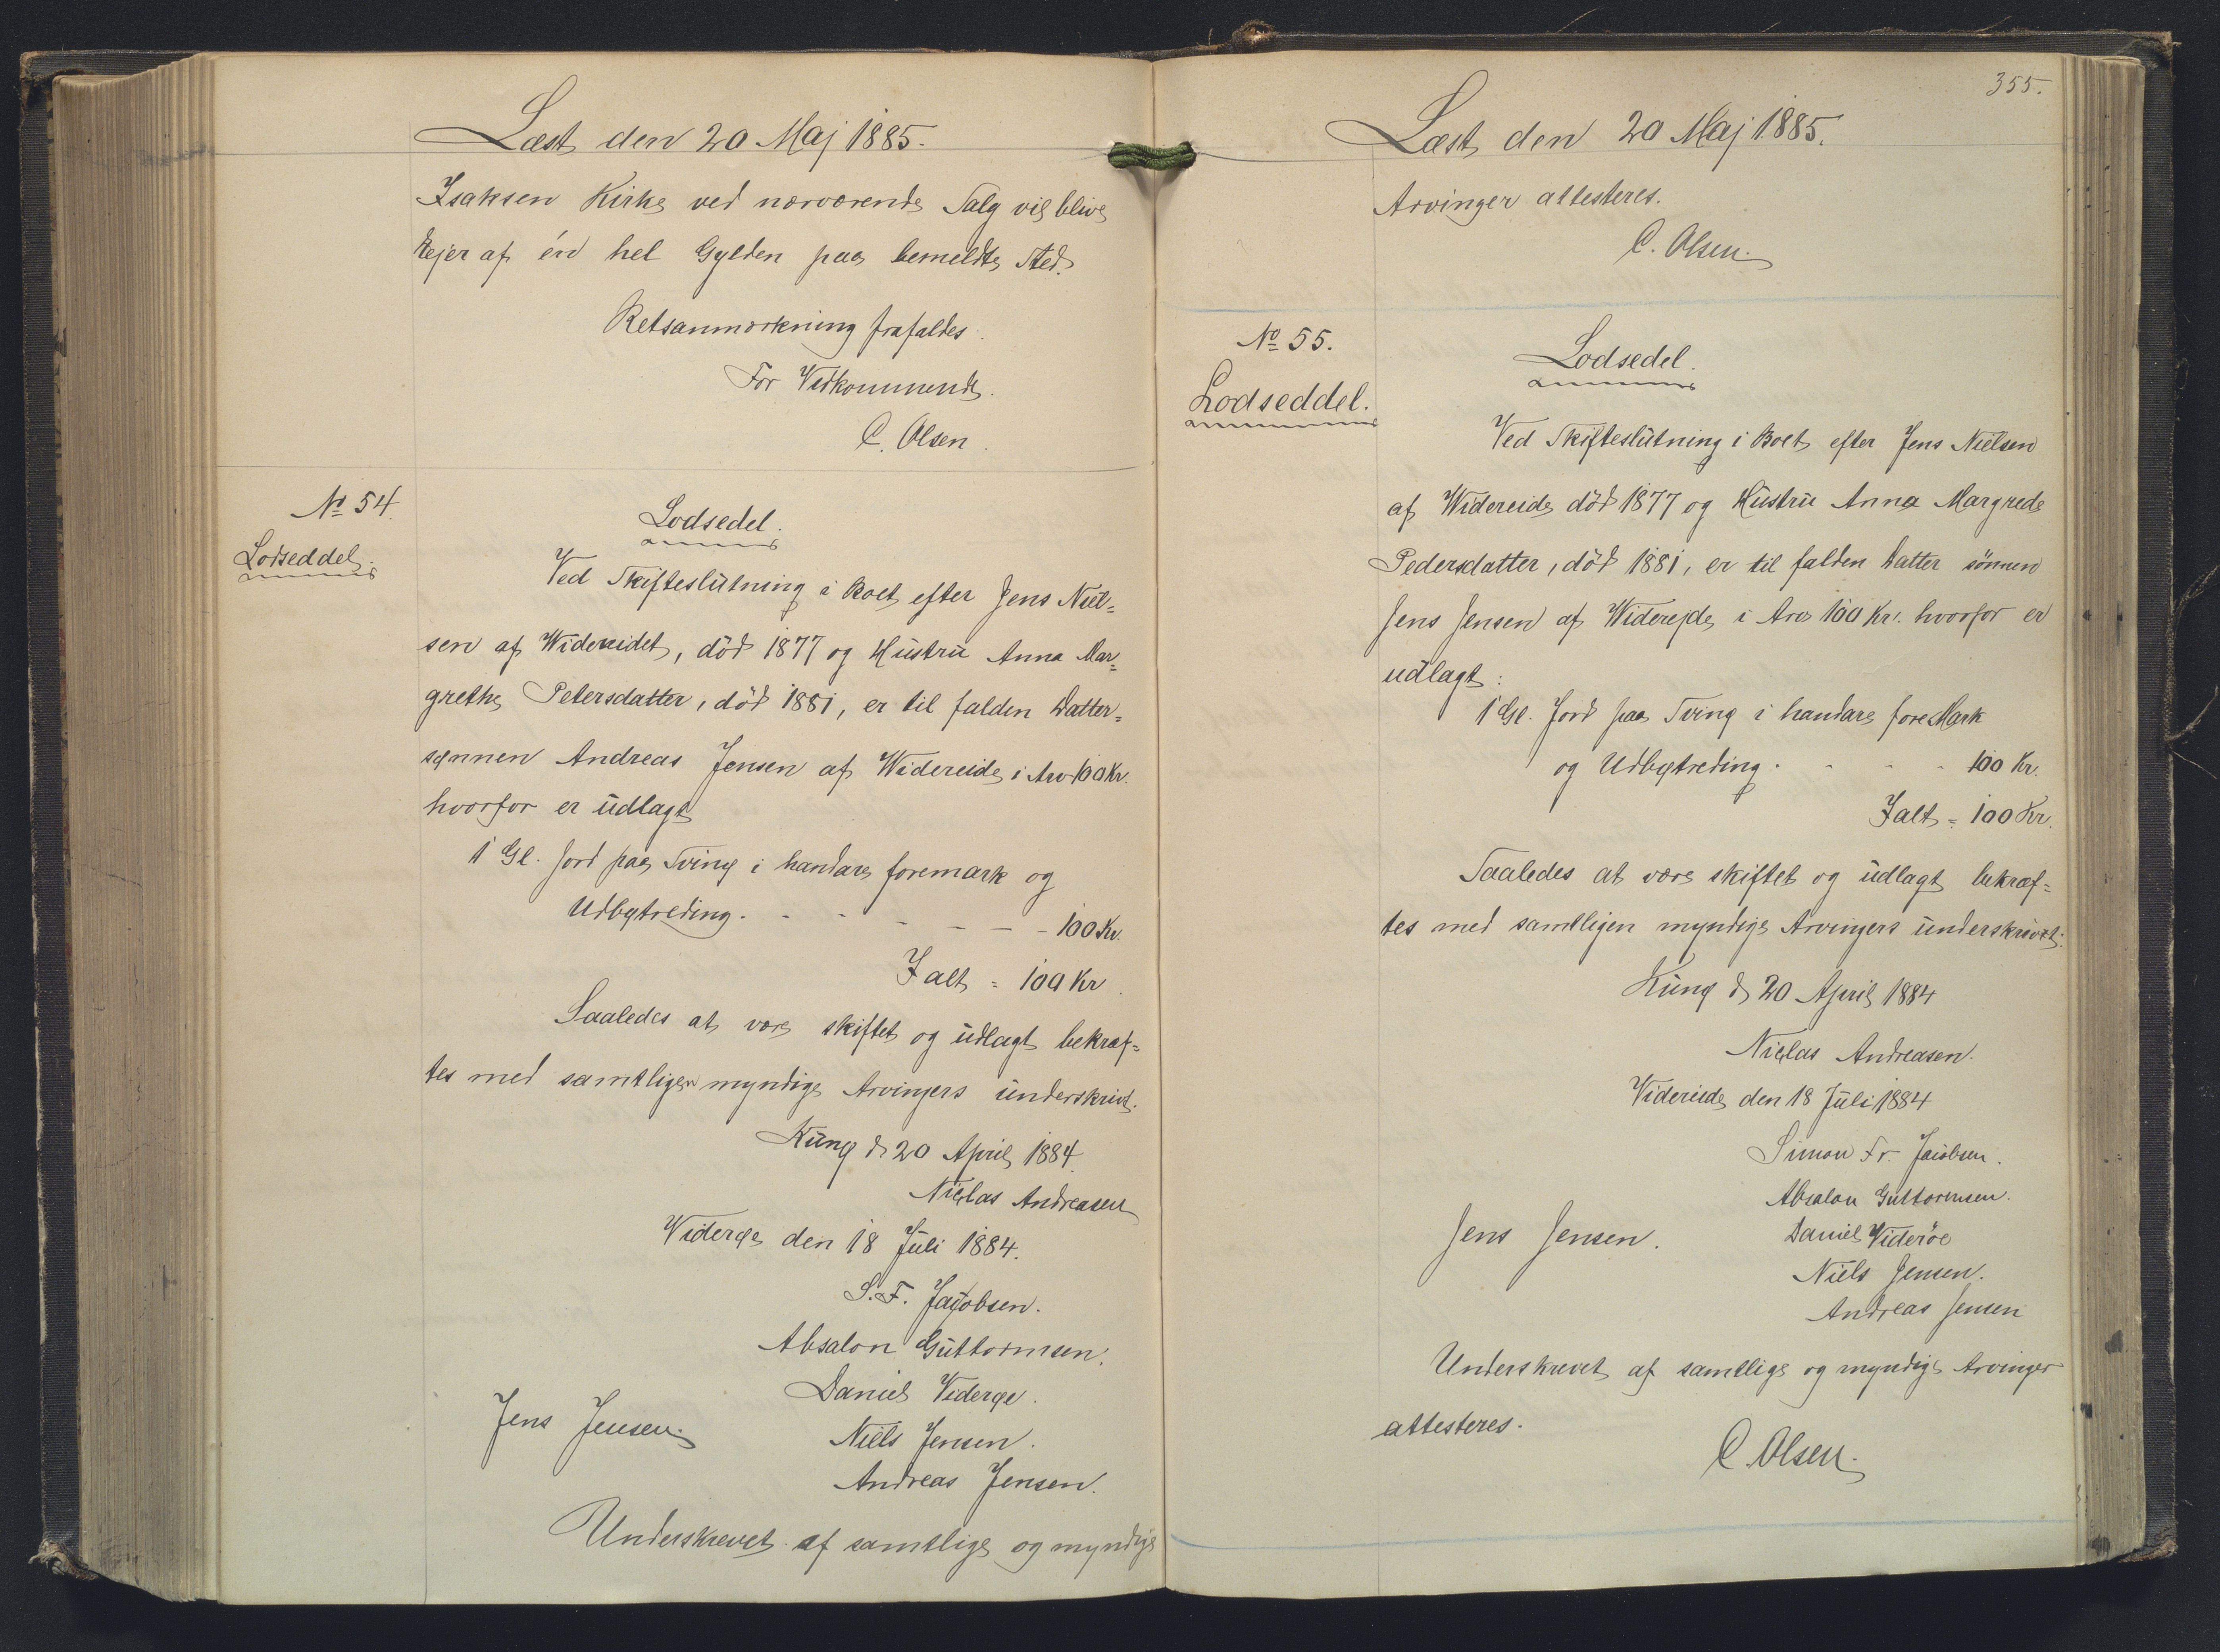 Læst den 20 Maj 1885.
Isaksen Kirke ved nærværende Salg vil blive
Eejer af én hel Gylden paa bemeldte Sted.
Retsanmærkning frafaldes.
For Vedkommende.
C. Olsen.
№ 54.
Lodseddel.
Lodsedel.
Ved Skifteslutning i Boet efter Jens Niel=
sen af Widereidet, död 1877 og Hustru Anna Mar=
grethe Petersdatter, död 1881, er til falden Datter=
sønnen Andreas Jensen af Widereide i Arv 100 Kr.
hvorfor er udlagt
1 Gl. Jord paa Tving i handare foremark og
Udbøtreding. - - - - - 100 Kr.
Ialt = 100 Kr.
Saaledes at være skiftet og udlagt bekræf=
tes med samtligen myndige Arvingers underskrivt.
Kung d. 20 April 1884.
Nielas Andreasen
Widerø den 18 Juli 1884.
S. F. Jacobsen.
Absalon Guttormsen.
Daniel Viderøe.
Jens Jensen.
Niels Jensen.
Andreas Jensen.
Underskrevet af samtlige og myndige
355.
Læst den 20 Maj 1885.
Arvinger attesteres.
C. Olsen.
№ 55.
Lodseddel.
Lodsedel.
Ved Skifteslutning i Boet efter Jens Nielsen
af Widereide död 1877 og Hustru Anna Margrede
Pedersdatter, död 1881, er til falden Datter sönnen
Jens Jensen af Widerejde i Arv 100 Kr. hvorfor er
udlagt:
1 Gl. Jord paa Tving i handare fore Mark
og Udbøtreding. - - - 100 Kr.
Ialt = 100 Kr.
Saaledes at være skiftet og udlagt bekræf=
tes med samtligen myndige Arvingers underskrivt:
Kung d. 20 April 1884
Nielas Andreasen.
Videreide den 18 Juli 1884
Simon Fr. Jacobsen.
Absalon Guttormsen.
Daniel Videröe
Jens Jensen.
Niels Jensen.
Andreas Jensen
Underskrevet af samtlige og myndige Arvinger
attesteres.
C. Olsen.